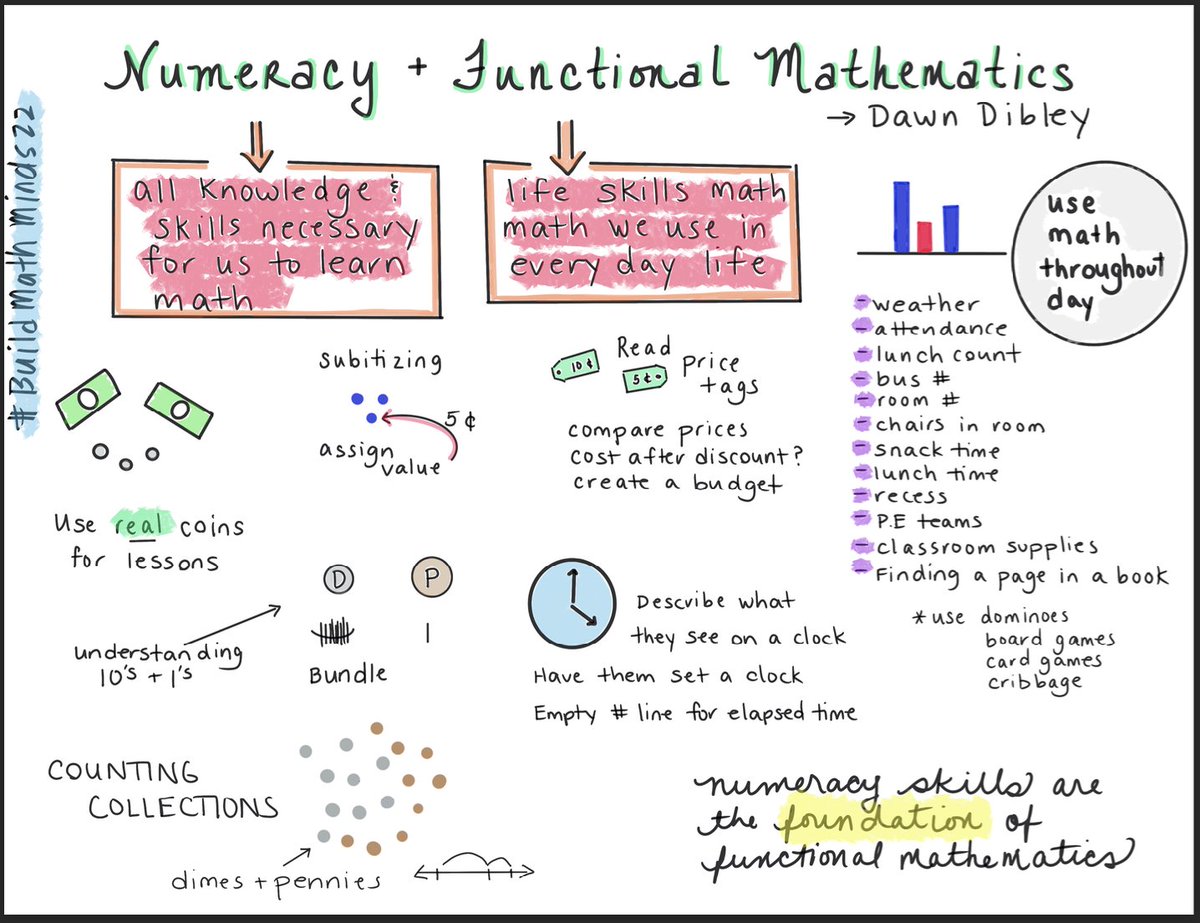 Numeracy + Functional Mathematics
→ Dawn Dibley
# Build Math Minds 22
all knowledge &
skills necessary
for us to learn
math
life skills math
math we use in
every day life
use
math
throughout
day
- weather
- attendance
- lunch count
- bus #
- room #
- chairs in room
- snack time
- lunch time
- recess
- P.E teams
- classroom supplies
- Finding a page in a book
* use dominoes
board games
card games
cribbage
Use real coins
for lessons
subitizing
5¢
assign
value
10¢
Read
5¢
price
tags
compare prices
cost after discount?
create a budget
understanding
10's + 1's
D
P
Bundle
Describe what
they see on a clock
Have them set a clock
Empty # line for elapsed time
COUNTING
COLLECTIONS
dimes + pennies
numeracy skills are
the foundation of
functional mathematics